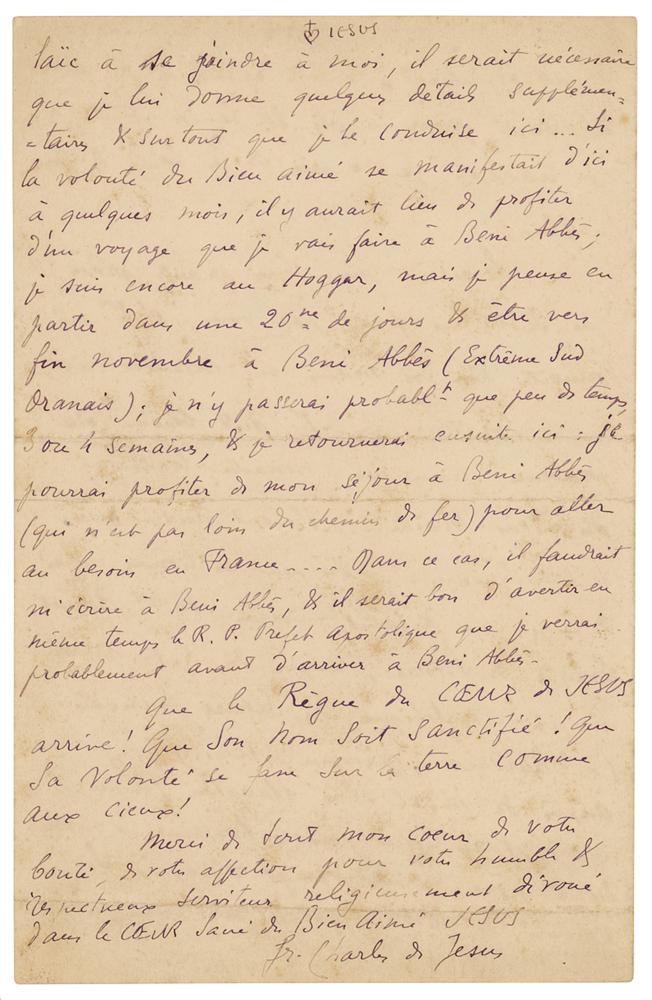 JESUS
laïc à se joindre à moi, il serait nécessaire
que je lui donne quelques détails supplémen=
=taires & surtout que je le conduise ici... Si
la volonté du Bien aimé se manifestait d'ici
à quelques mois, il y aurait lieu de profiter
d'un voyage que je vais faire à Beni Abbès;
je suis encore au Hoggar, mais je pense en
partir dans une 20ne de jours & être vers
fin novembre à Beni Abbès (Extrême Sud
Oranais); je n'y passerai probablt que peu de temps,
3 ou 4 semaines, & je retournerai ensuite ici : je
pourrai profiter de mon séjour à Beni Abbès
(qui n'est pas loin du chemin de fer) pour aller
au besoin en France.... Dans ce cas, il faudrait
m'écrire à Beni Abbès, & il serait bon d'avertir en
même temps le R. P. Préfet Apostolique que je verrai
probablement avant d'arriver à Beni Abbès.
Que le Règne du CŒUR de JESUS
arrive! Que Son Nom Soit Sanctifié! Que
Sa Volonté se fasse Sur la terre comme
aux cieux!
Merci de tout mon coeur de votre
bonté, de votre affection pour votre humble &
respectueux serviteur religieusement dévoué
dans le CŒUR Sacré du Bien Aimé JESUS
fr. Charles de Jesus